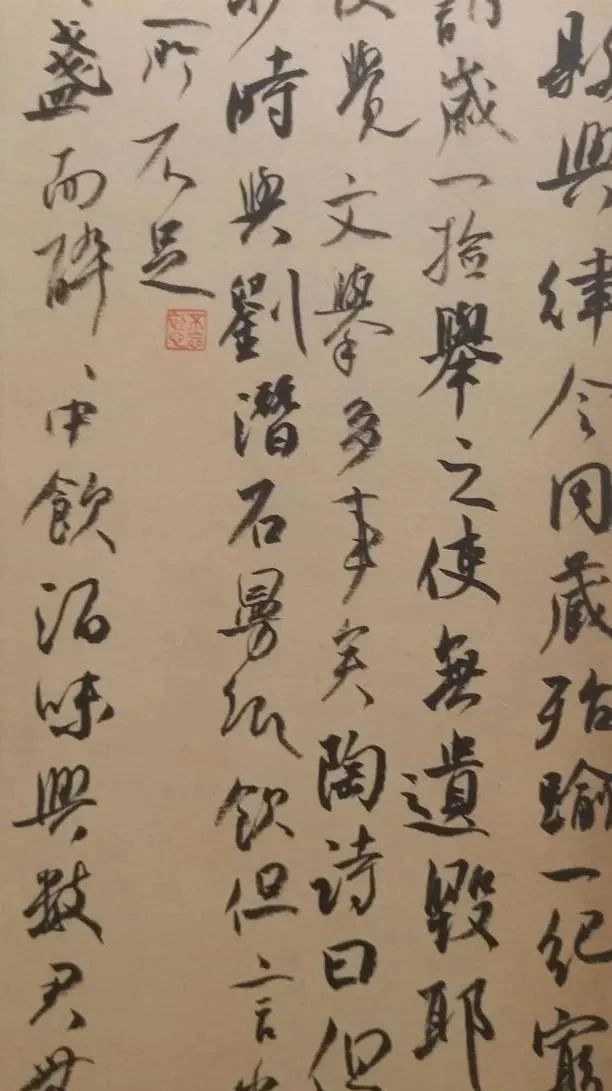 縣與律令同藏殆踰一紀寧
歲一撿舉之使無遺毀耶
覺文舉多事矣陶詩曰但
時與劉潛石曼卿飲但言
所不足
盞而醉中飲酒味與數君